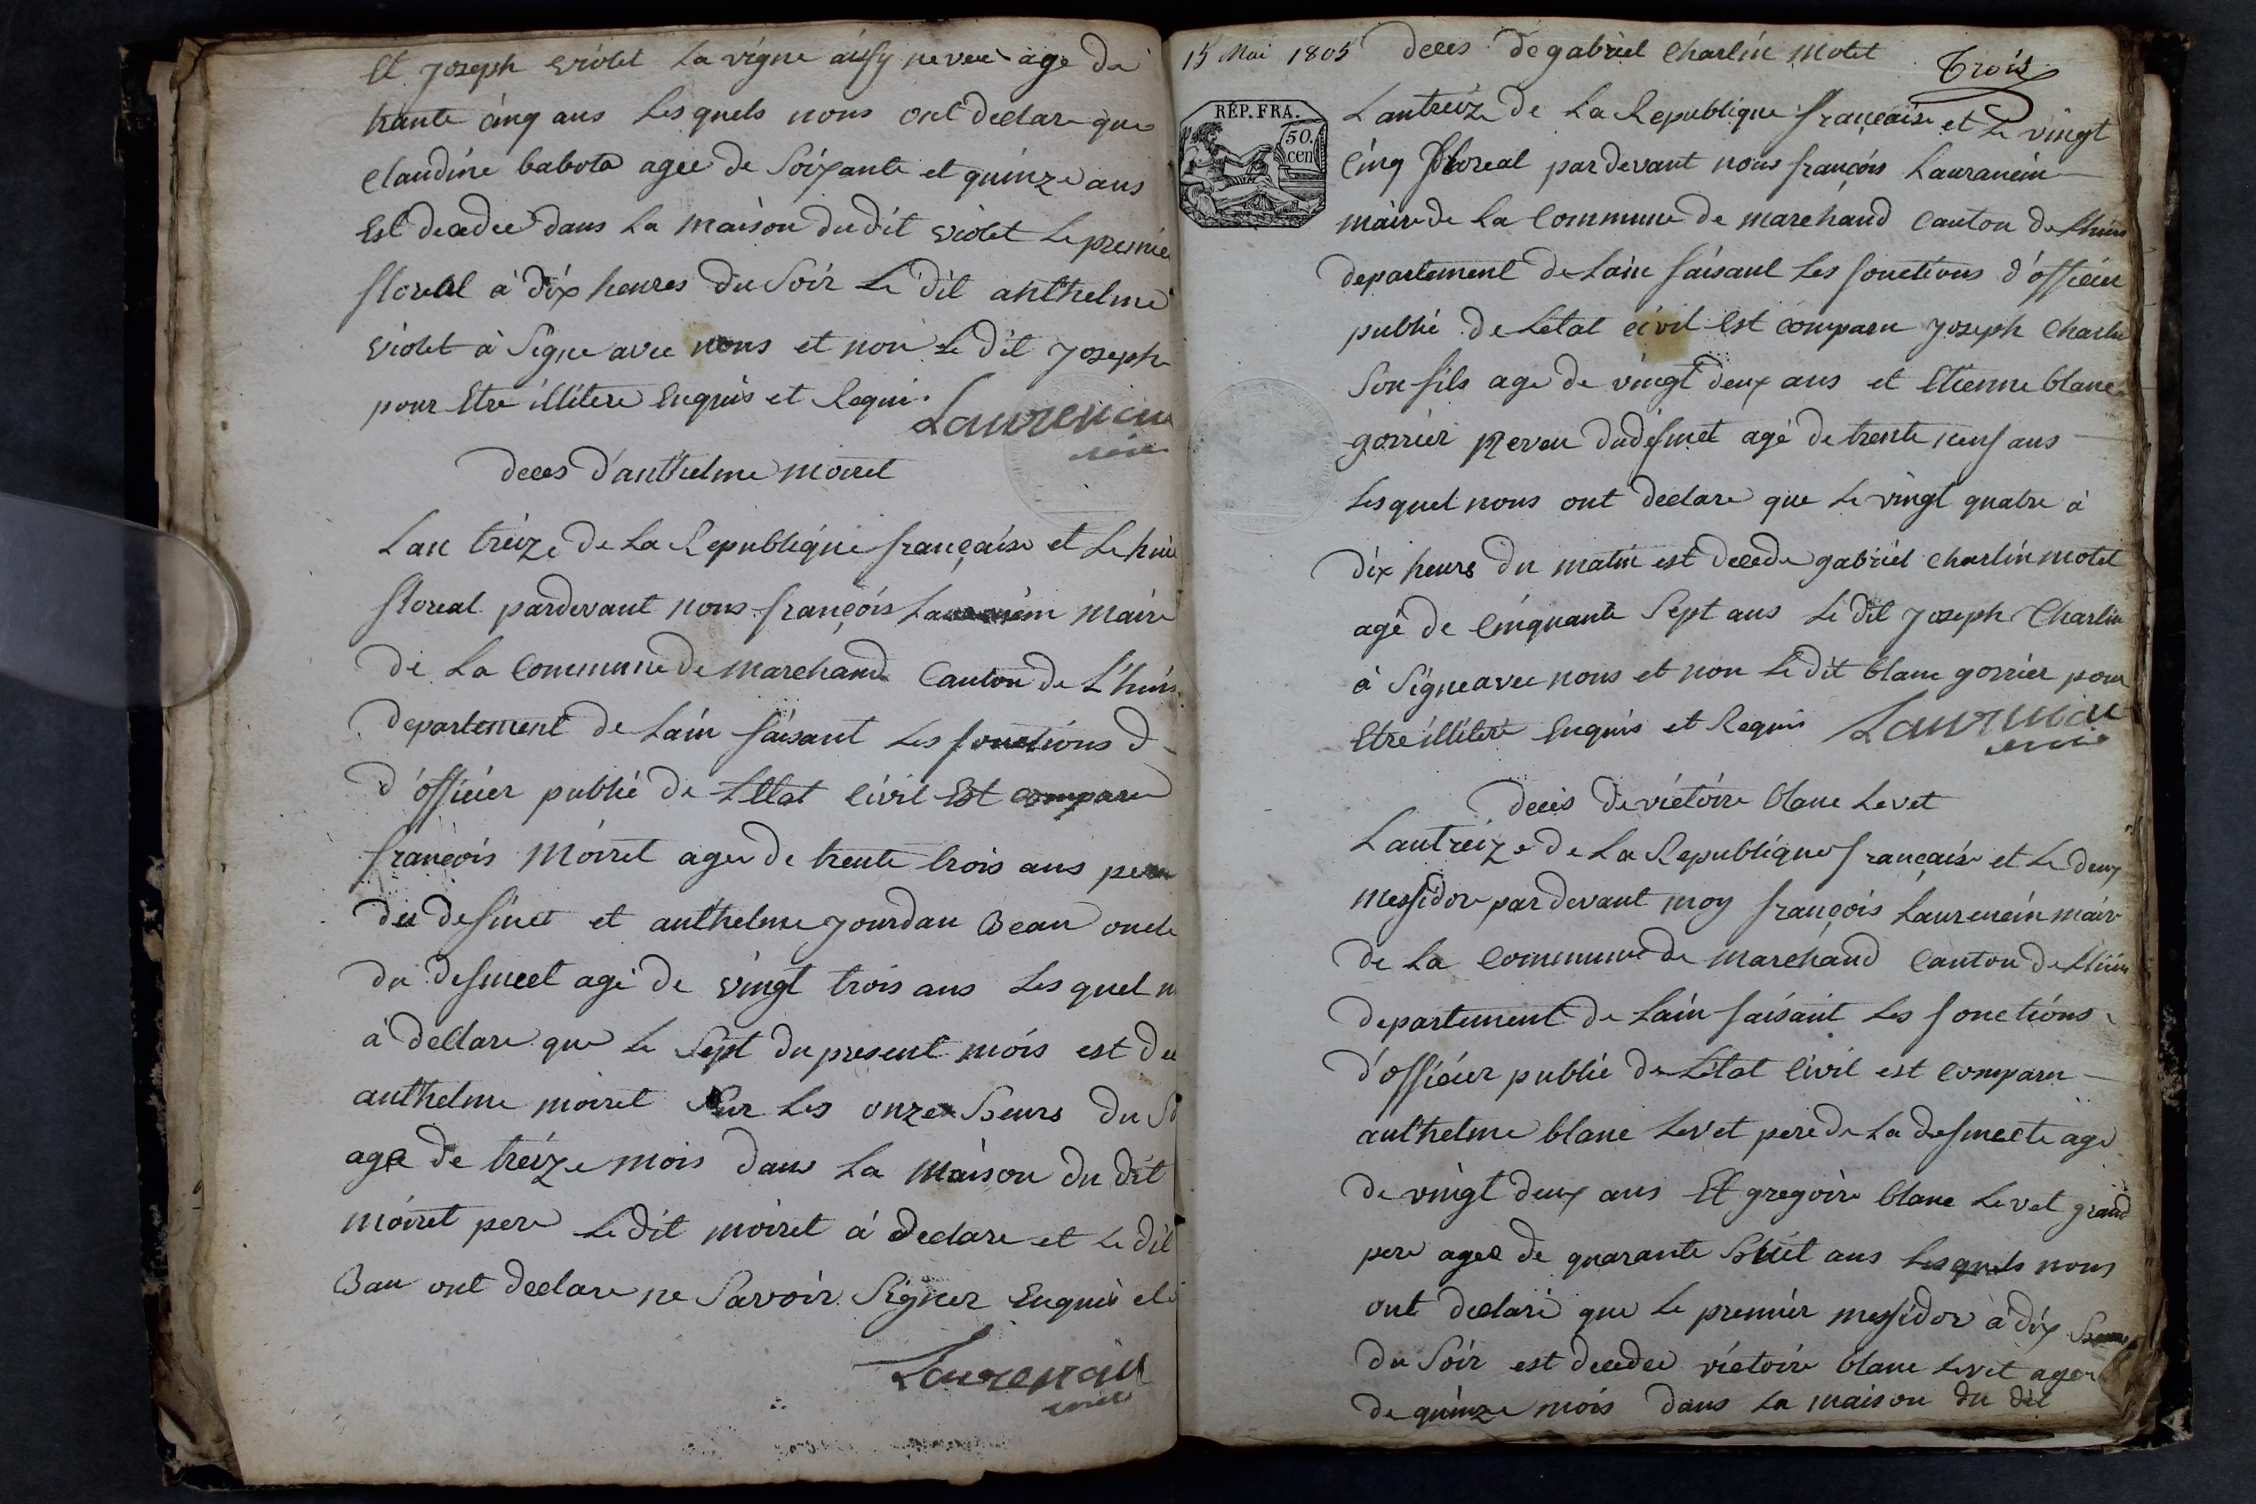 Et joseph violet la vigne aussy neveu agé de
trante cinq ans lesquels nous ont declaré que
claudine babola agée de soixante et quinze ans
est decedée dans la maison dudit violet le premie
floreal à dix heures du soir le dit anthelme
violet à signe avec nous et non le dit joseph
pour etre illitere enquis et requi.
Laurencin
deces d'anthelme moiret
Lan treize de la Republique française et le huit
floreal pardevant nous françois Laurencin maire
de la commune de marchand canton de L'huis
departement de Lain faisant les fonctions d
d'officier publié de L'Etat civil Est comparu
françois moiret agé de trente trois ans pere
du defunct et anthelme jourdan Beau oncle
du defunct agé de vingt trois ans lesquel n
à declare que le sept du present mois est de
anthelme moiret sur les onze heurs du so
age de treize mois dans la maison du dit
moiret pere le dit moiret à declare et le dit
Bau ont declare ne savoir signer enquis et
Laurencin
15 Mai 1805 deces de gabriel charlin motet
Trois
RÉP. FRA.
50.
cen
Lantreize de la Republique française et le vingt
cinq floreal pardevant nous françois Laurancin
maire de la commune de marchand canton de Lhuis
departement de Lain faisant les fonctions d'officier
publié de Letat civil est comparu joseph charlin
son fils age de vingt deux ans et Etienne blanc
gorrier neveu du defunct agé de trente neuf ans
lesquel nous ont declare que le vingt quatre à
dix heurs du matin est decede gabriel charlin motet
agé de cinquante sept ans le dit joseph Charlin
à signe avec nous et non le dit blanc gorrier pour
etre illitere enquis et requis Laurencin
deces de victoire blanc levet
Lantreize de la Republique francaise et le deux
messidor pardevant moy françois Laurencin maire
de la commune de marchand canton de Lhuis
departement de Lain faisant les fonctions
d'officier publié de Létat civil est comparu
anthelme blanc levet pere de la defuncte agé
de vingt deux ans Et gregoire blanc levet grand
pere agée de quarante huit ans lesquels nous
ont declaré que le premier messidor à dix heures
du soir est decedee victoire blanc levet agee
de quinze mois dans la maison du dit